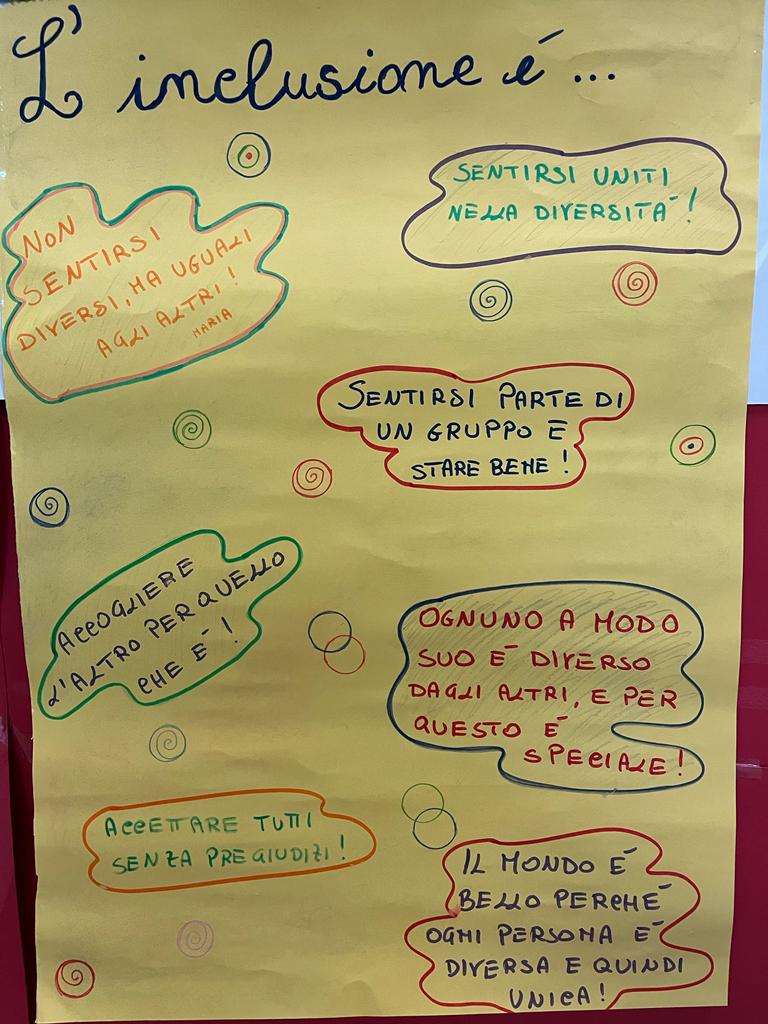 L'inclusione é...
SENTIRSI UNITI
NELLA DIVERSITÁ!
NON
SENTIRSI
DIVERSI, MA UGUALI
AGLI ALTRI!
MARIA
SENTIRSI PARTE DI
UN GRUPPO E
STARE BENE!
ACCOGLIERE
L'ALTRO PER QUELLO
CHE É!
OGNUNO A MODO
SUO É DIVERSO
DAGLI ALTRI, E PER
QUESTO É
SPECIALE!
ACCETTARE TUTTI
SENZA PREGIUDIZI!
IL MONDO É
BELLO PERCHÉ
OGNI PERSONA É
DIVERSA E QUINDI
UNICA!